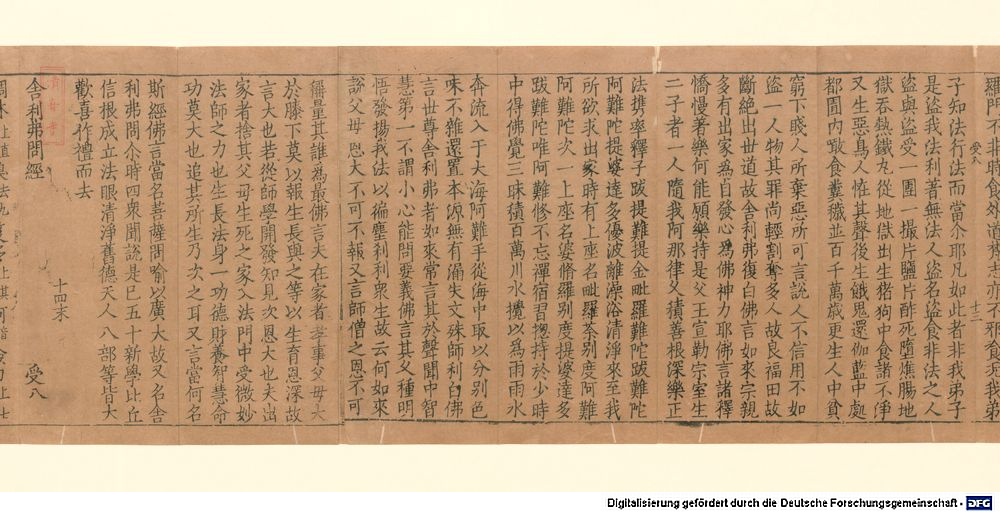 羅門不非時食外道梵志亦不邪食況我弟
受八　十三
子知法行法而當尒耶凡如此者非我弟子
是盜我法利著無法人盜名盜食非法之人
盜與盜受一團一撮片鹽片酢死墮燋腸地
獄吞熱鐵丸從地獄出生猪狗中食諸不淨
又生惡鳥人恠其聲後生餓鬼還伽藍中處
都圊内噉食糞穢並百千萬歲更生人中貧
窮下賤人所棄惡所可言說人不信用不如
盜一人物其罪尚輕割奪多人故良福田故
斷絕出世道故舍利弗復白佛言如來宗親
多有出家為自發心為佛神力耶佛言諸釋
憍慢著樂何能願樂持是父王宣勒宗室生
二子者一人隨我阿那律父積善根深樂正
法携率釋子跋提難提金毗羅難陀跋難陀
阿難陀提婆達多優波離澡浴清淨來至我
所欲求出家時有上座名毗羅荼別度阿難
阿難陀次一上座名婆脩羅別度提婆達多
跋難陀唯阿難修不忘禪宿習揔持於少時
中得佛覺三昧積百萬川水攪以為雨雨水
奔流入于大海阿難手從海中取以分別色
味不雜還置本源無有漏失文殊師利白佛
言世尊舍利弗者如來常言其於聲聞中智
慧第一不謂小心能問要義佛言其父種明
悟發揚我法以徧塵利利衆生故云何如來
說父母恩大不可不報又言師僧之恩不可
稱量其誰為最佛言夫在家者孝事父母
於膝下莫以報生長與之等以生育恩深故
言大也若從師學開發知見次恩大也夫出
家者捨其父母生死之家入法門中受微妙
法師之力也生長法身一功德財養知慧命
功莫大也追其所生乃次之耳又言當何名
十四末　受八
斯經佛言當名菩薩問喻以廣大故又名舍
利弗問尒時四衆聞說是已五十新學比丘
信根成立法眼清淨舊德天人八部等皆大
歡喜作禮而去
舍利弗問經
Digitalisierung gefördert durch die Deutsche Forschungsgemeinschaft - DFG